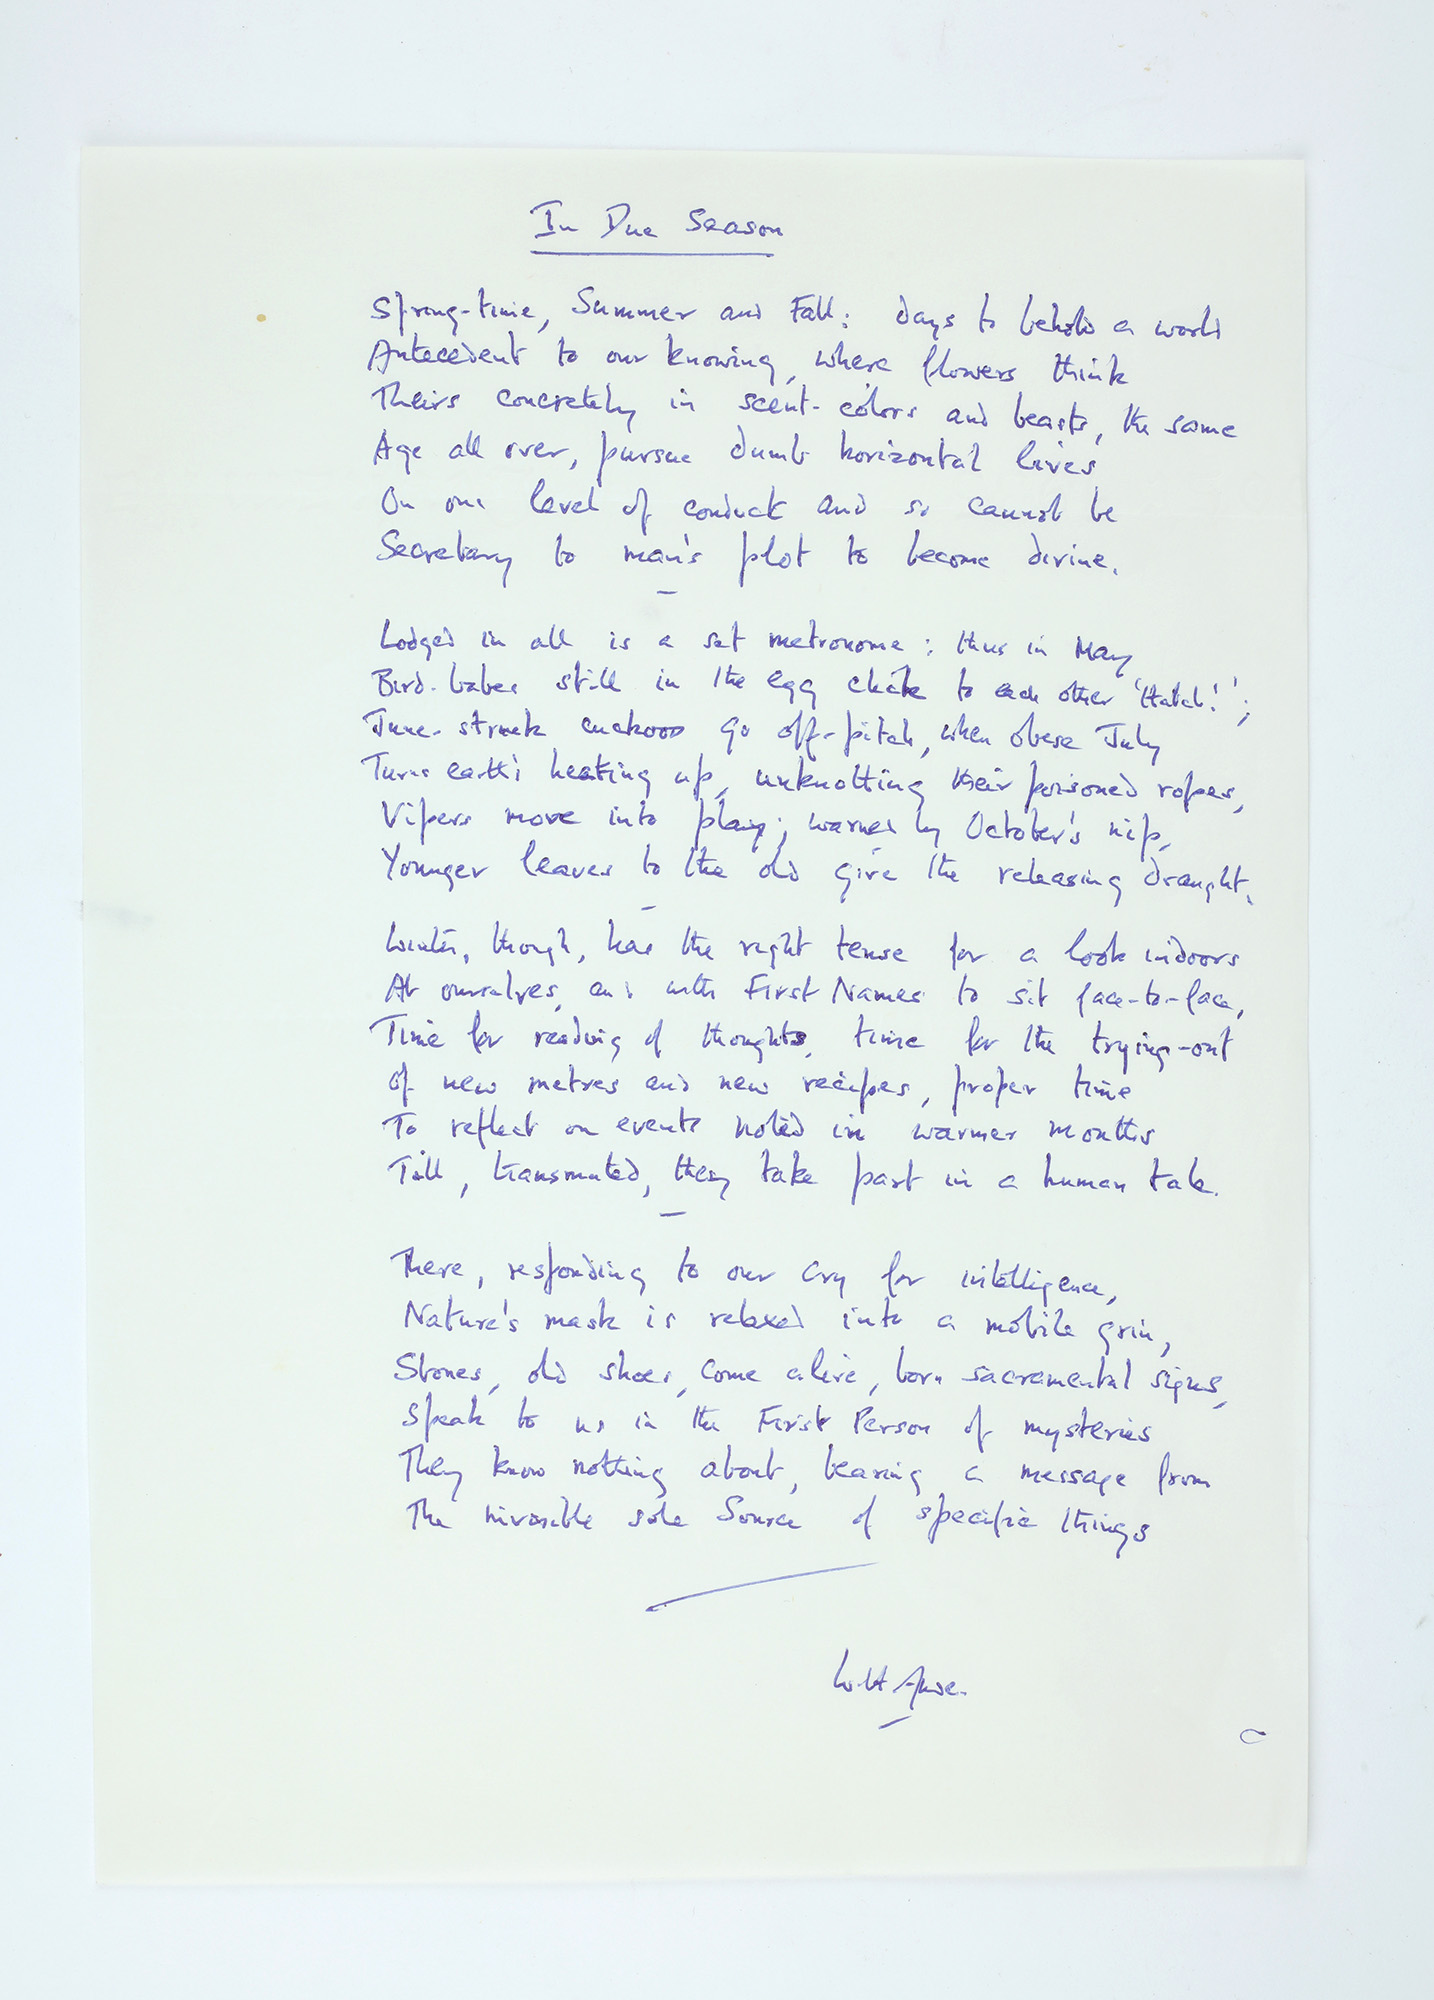 In Due Season
Spring-time, Summer and Fall: days to behold a world
Antecedent to our knowing, where flowers think
Theirs concretely in scent-colors and beasts, the same
Age all over, pursue dumb horizontal lives
On one level of conduct and so cannot be
Secretary to man's plot to become divine.
Lodged in all is a set metronome: thus in May
Bird-babes still in the egg click to each other 'Hatch!';
June-struck cuckoos go off-pitch, when obese July
Turns earth's heating up, unknotting their poisoned ropes,
Vipers move into play; warned by October's nip,
Younger leaves to the old give the releasing draught.
Winter, though, has the right tense for a look indoors
At ourselves, and with First Names to sit face-to-face,
Time for reading of thoughts, time for the trying-out
Of new metres and new recipes, proper time
To reflect on events noted in warmer months
Till, transmuted, they take part in a human tale.
There, responding to our cry for intelligence,
Nature's mask is relaxed into a mobile grin,
Stones, old shoes, come alive, born sacramental signs,
Speak to us in the First Person of mysteries
They know nothing about, bearing a message from
The invisible sole Source of specific things
W H Auden